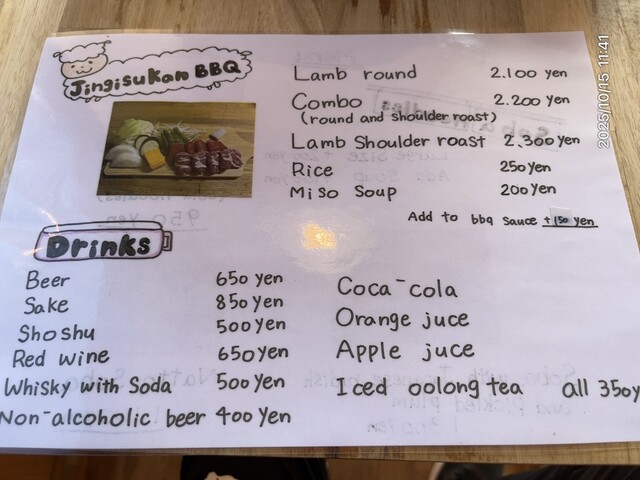 Jingisukan BBQ
Lamb round 2.100 yen
Combo 2.200 yen
(round and shoulder roast)
Lamb Shoulder roast 2.300 yen
Rice 250 yen
Miso Soup 200 yen
Add to bbq sauce +150 yen
Drinks
Beer 650 yen
Sake 850 yen
Shoshu 500 yen
Red wine 650 yen
Whisky with Soda 500 yen
Non-alcoholic beer 400 yen
Coca-cola
Orange juce
Apple juce
Iced oolong tea all 350y
2025/10/15 11:41